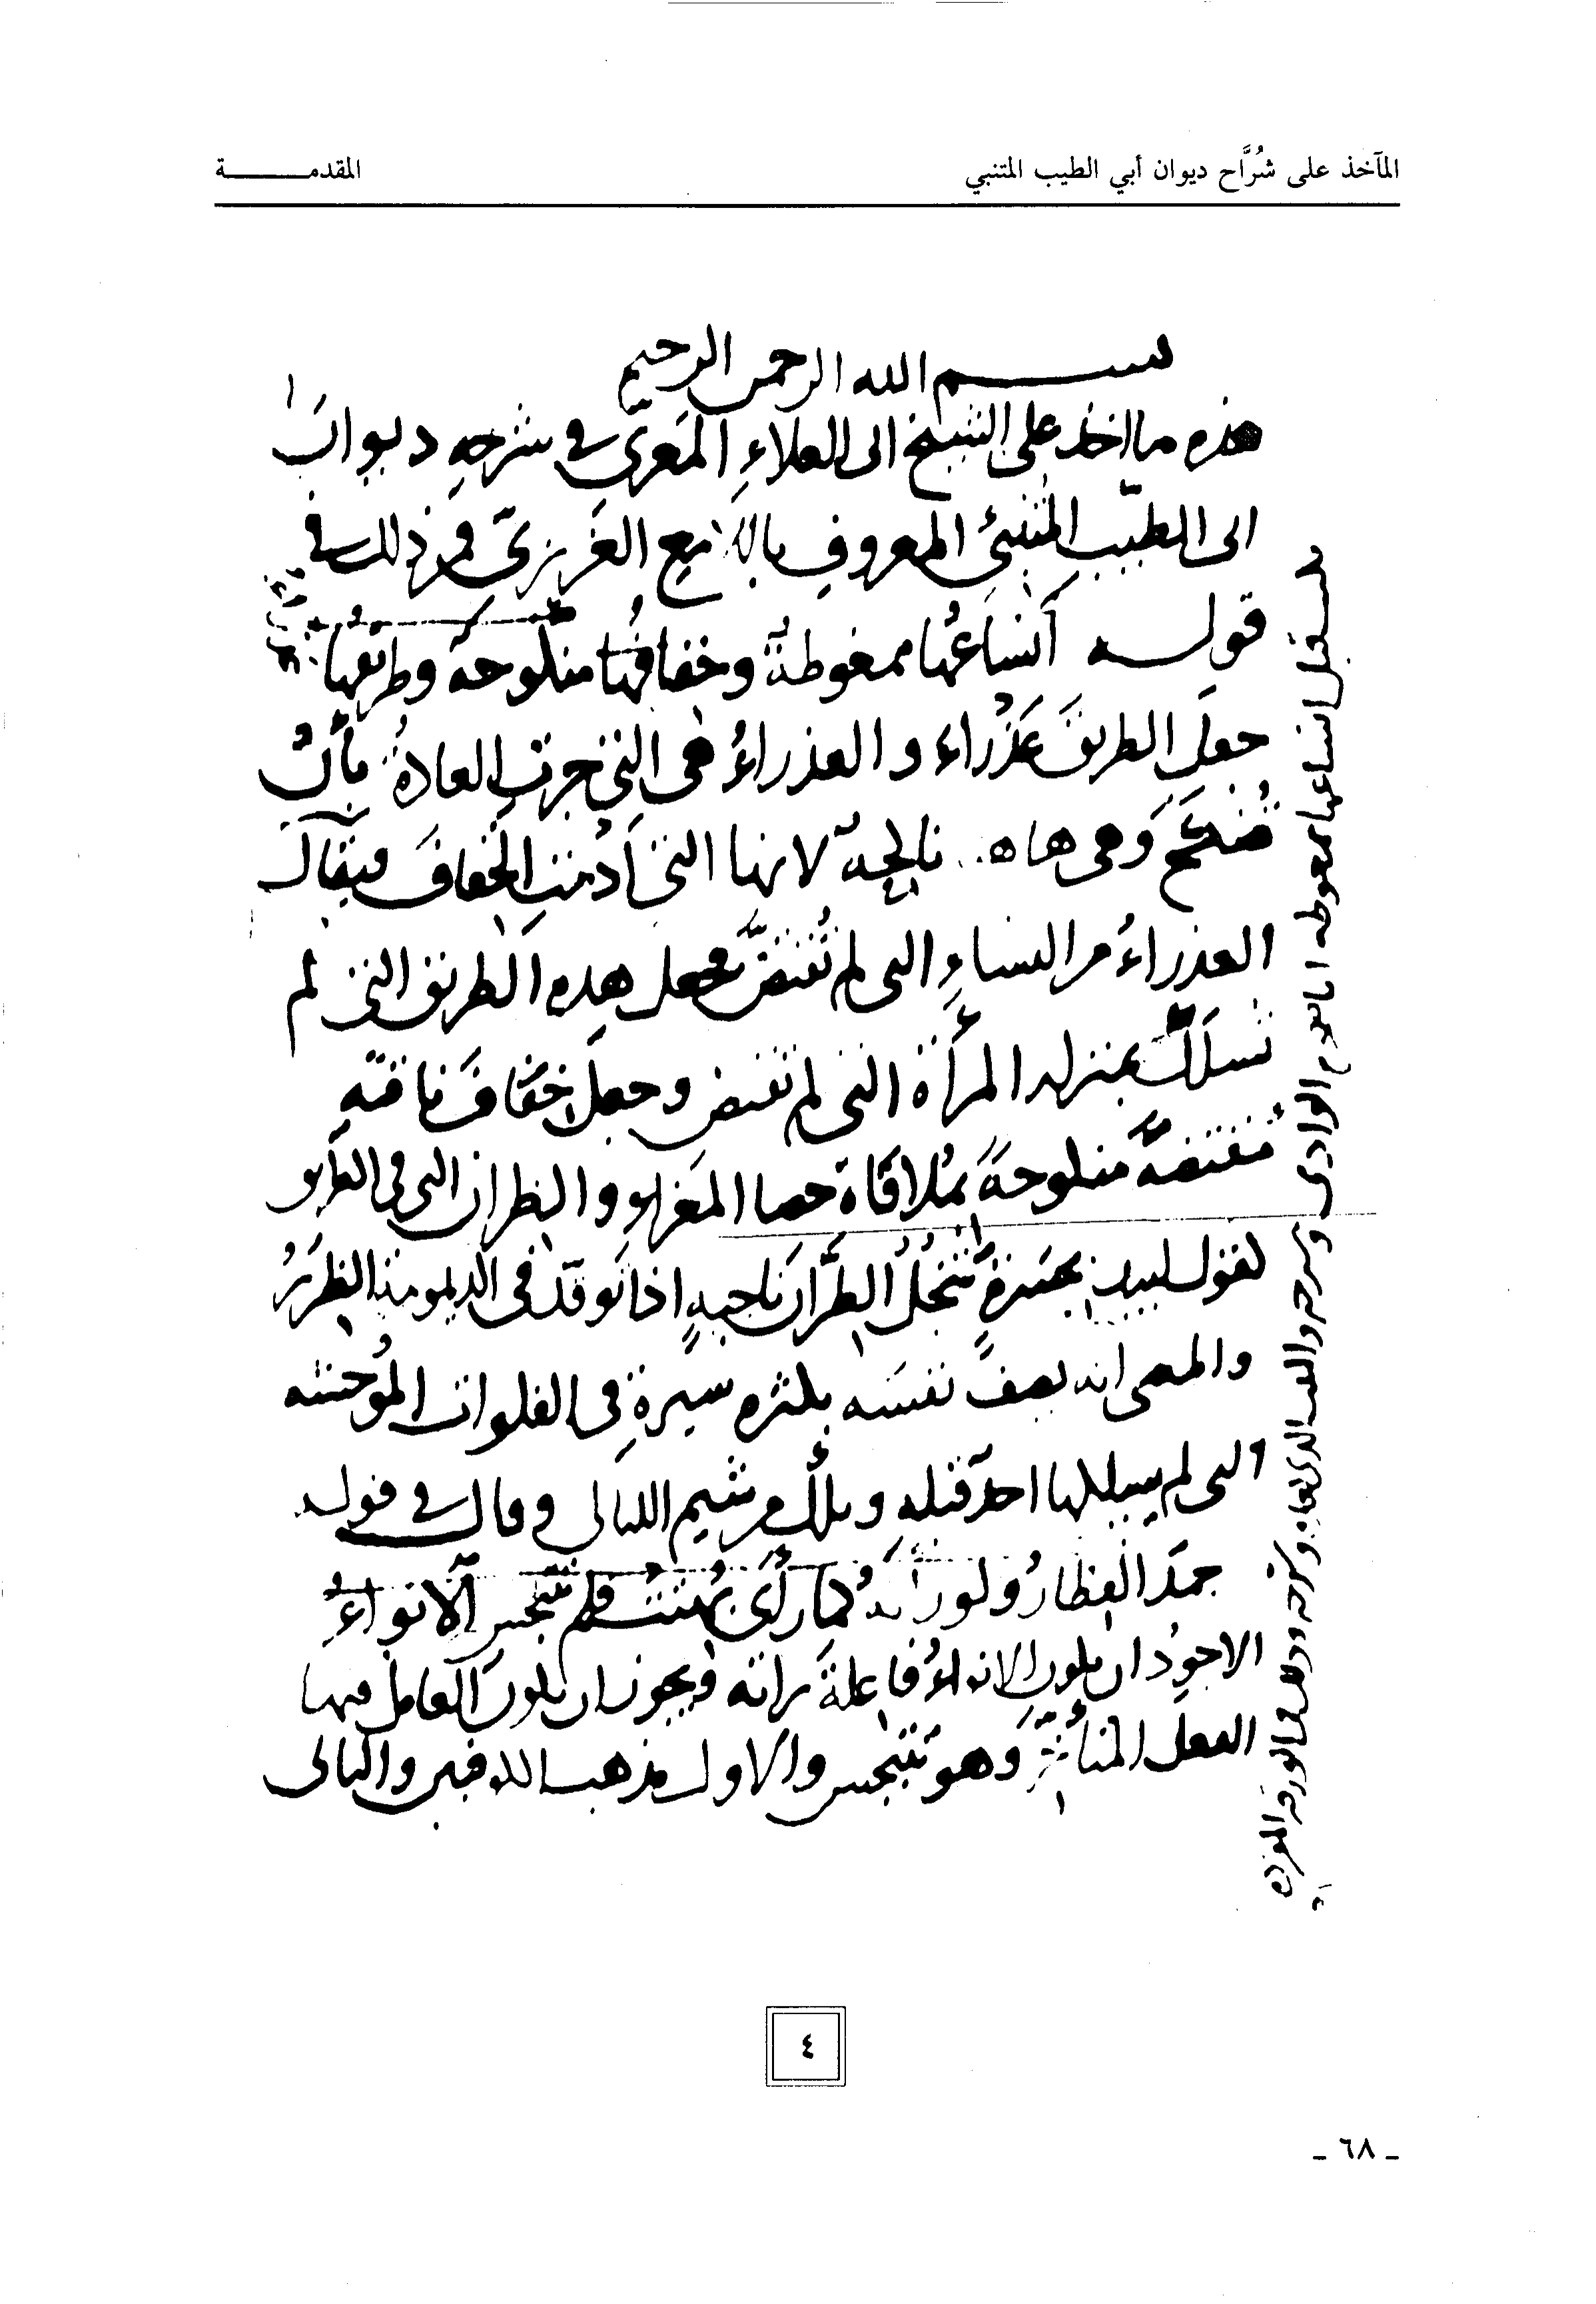 المآخذ على شُرَّاح ديوان أبي الطيب المتنبي
المقدمـــــــة
بسم الله الرحمن الرحيم
هذه مآخذ على الشيخ ابى العلاءِ المَعرّىِ فى شرحِهِ ديوانَ
ابى الطيّبِ المتنبىءِ المعروفِ باللامع العَزيزىّ فمن ذلك فى
قوله أنساعُها ممغوطةٌ وخفافُها منكوحة وطريقها
جعلَ الطريقَ عَذْراء والعذراءُ هى التى جرتِ العادةُ بأنْ
تُنكحَ وهى هاهنا ناكحة لانها التى أدمَتِ الخفافَ ويقال
العذراءُ من النساءِ التى لم تُفتضَّ فجعل هذه الطريق التى لم
تُسلَك بمنزلة المرأة التى لم تفتض وجعل خفافَ ناقتهِ
مُفتضّةً منكوحةً بمُلاقاة حصا المَعْزاءِ والظران التى فى الطريق
كقول لبيد بجَسْرةٍ تَنجُلُ الظُّرَّانَ ناجيةٍ اذا توقّد فى الديمومة الظُرَرُ
والمعنى انه يصفُ نفسَه بكثرة سيرهِ فى الفلوات الموحشة
التى لم يسلكها احدٌ قبله وتلك من شيم الليالى وقال فى قوله
جمدَ القطارُ ولو رأتهُ كما رأى بُهتتْ فلم تتبجسِ الأنواءُ
الاجودُ ان تكون الانواءُ فاعلةَ رأته ويجوز ان تكونَ العامل فيها
الفعل المتأخّر وهو تتبجس والاول مذهب الكوفيين والثانى
٤
ـ ٦٨ ـ